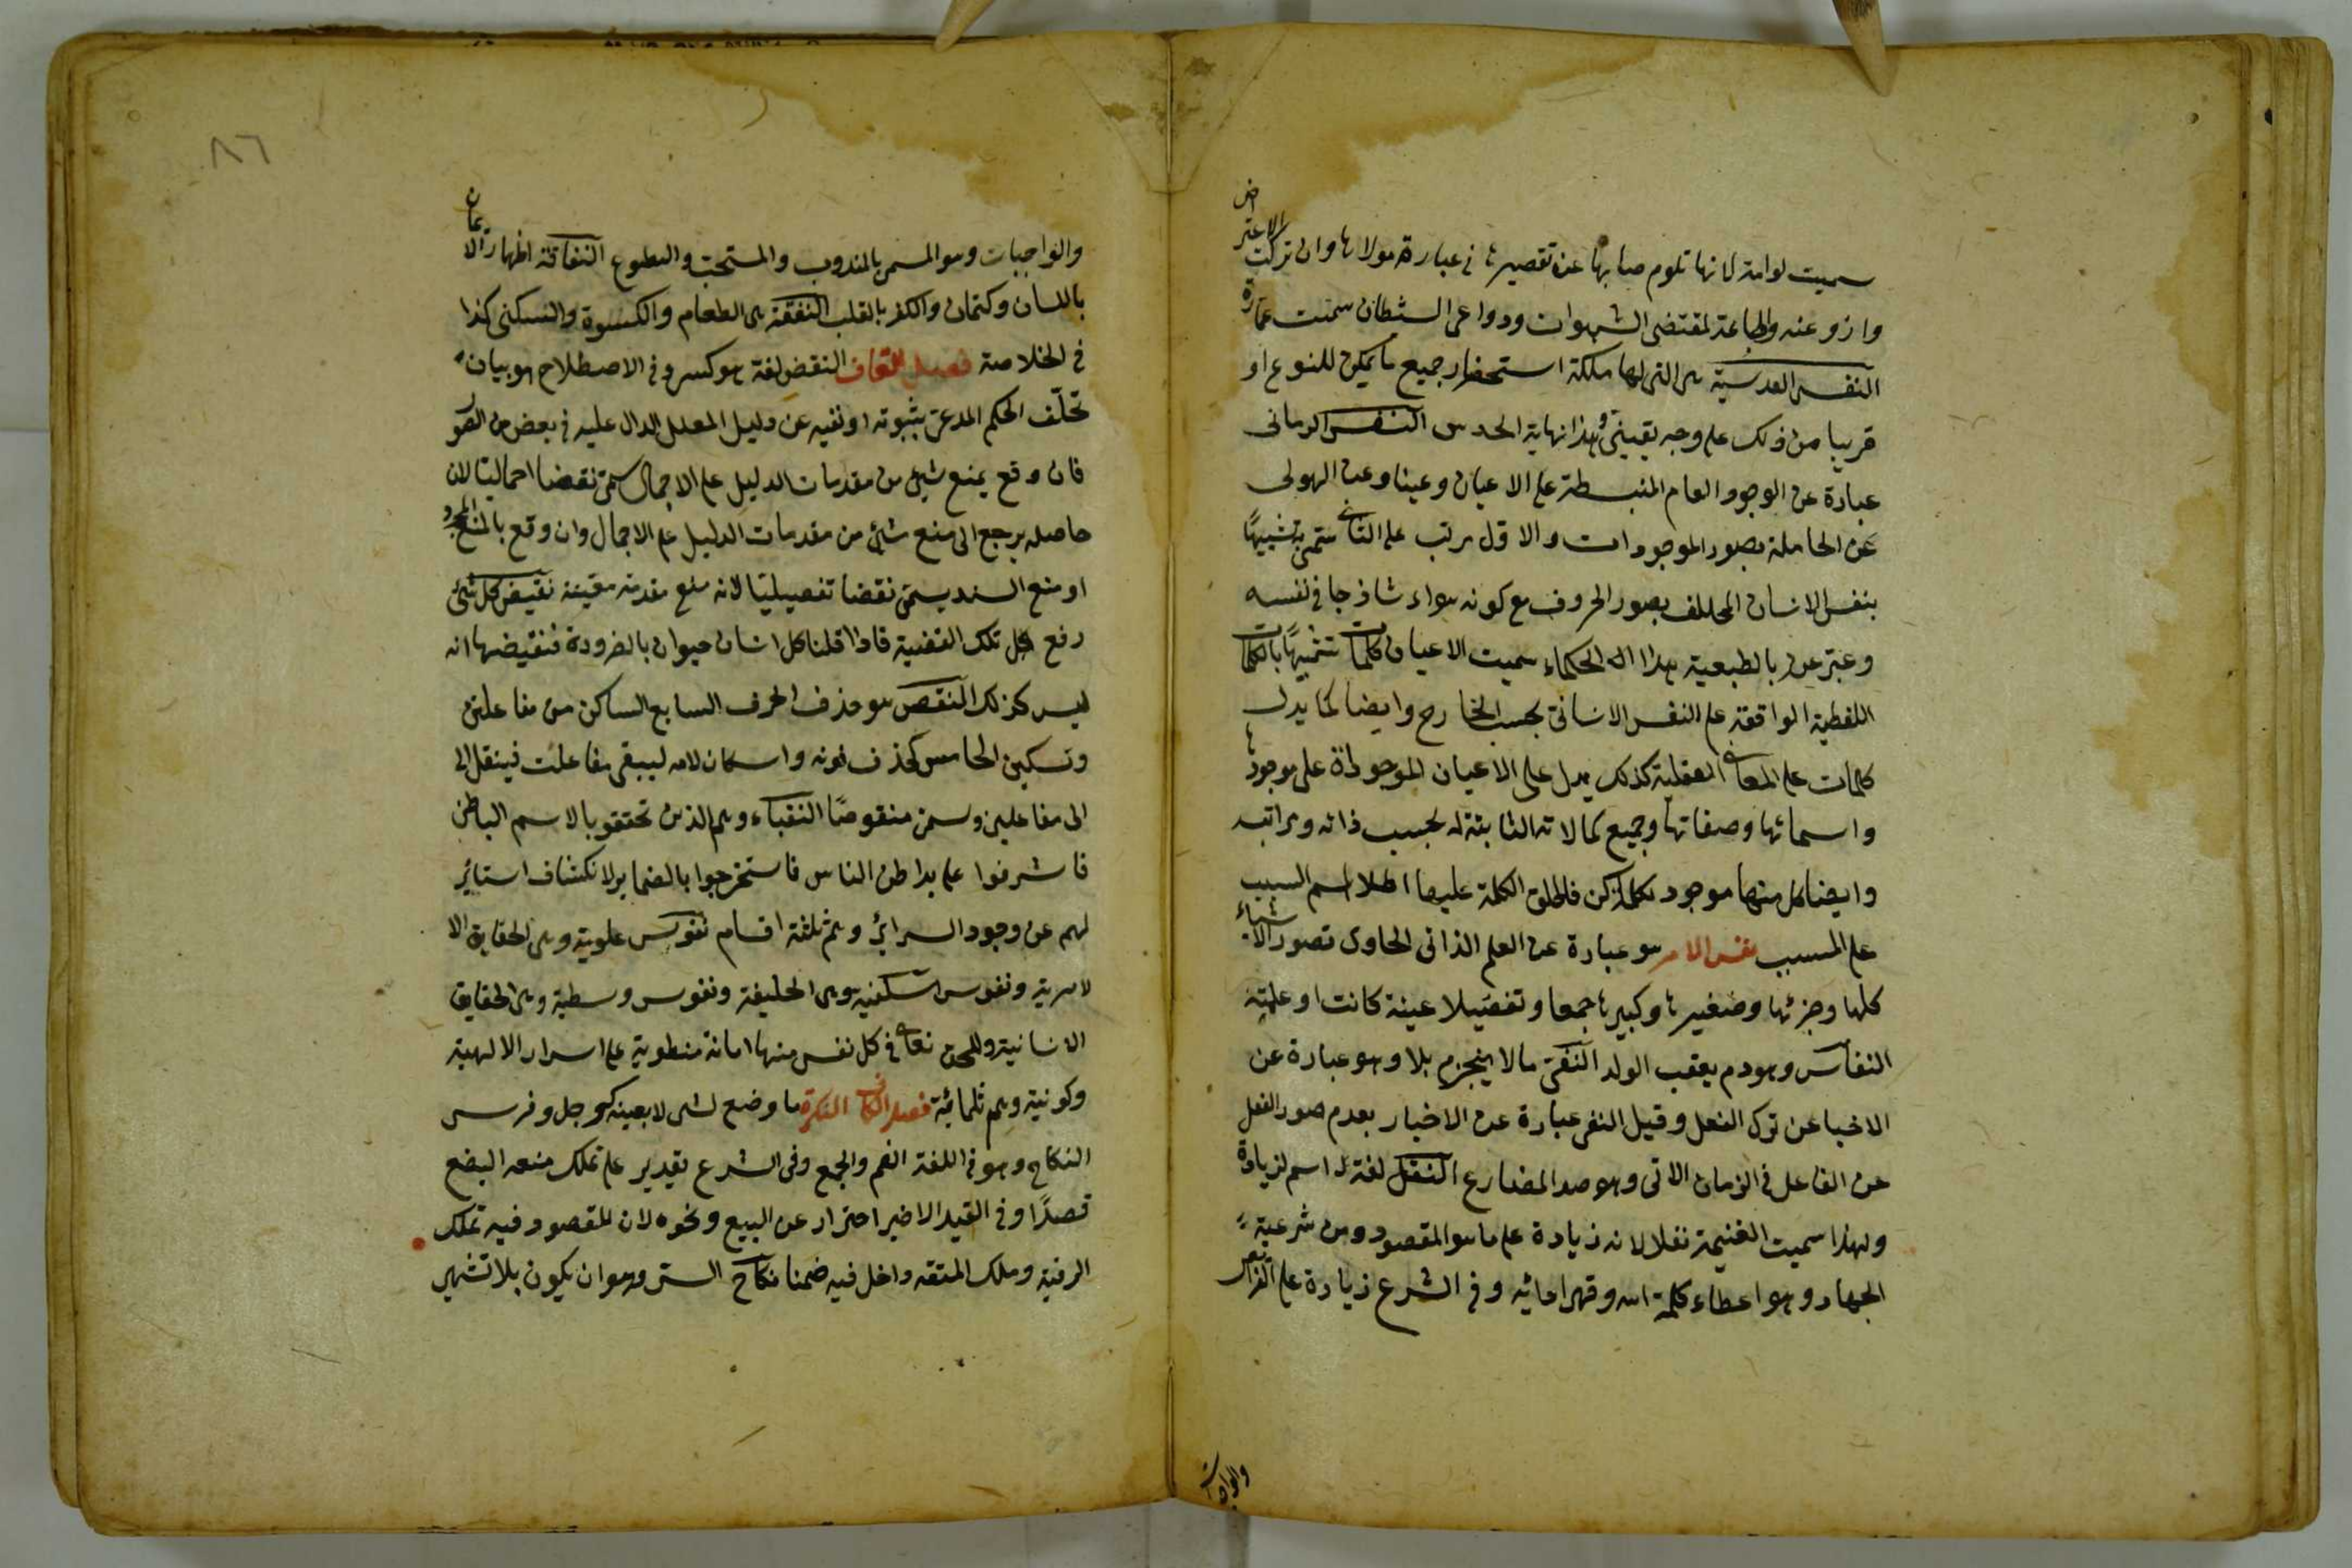 سميت لوامة لانها تلوم صابها عن تقصيرها في عبارة مولاها وان تركت الاعتراض
واذوعنه والطاعة لمقتضى الشهوات ودواعى الشطان سمت عمارة
النفس القدسية هى التى لها ملكة استحضار جميع ما يمكن للنوع او
قريبا من ذلك على وجه يقينى وهذا نهاية الحدس النفس الرمانى
عبارة عن الوجود العام المنبسطة على الاعيان وعينا وعن الهولى
عن الحاملة بصور الموجودات والاول مرتب على الثانى سمى تشبيهًا
بنفس الانسان المحللف بصور الحروف مع كونه سواء شاذجا فى نفسه
وعبر عن بالطبعية هذا الحكماء سميت الاعيان كلمات تشبيهًا بالكلمات
اللفظية الواقعة على النفس الانسانى بحسب الخارج وايضا كما يدل
كلمات على المعانى العقلية كذلك يدل على الاعيان الموجوداة على موجودها
واسمائها وصفاتها وجميع كمالاته الثابتة له بحسب ذاته ومراتبه
وايضا كل منها موجود بكلمة كن فاطلق الكلمة عليها اطلا اسم السبب
على المسبب نفس الامر هو عبارة عن العلم الذاتى الحاوى تصور الاشياء
كلها وجزئها وصغيرها وكبيرها جمعا وتفصيلا عينة كانت او علمية
النفاس وهو دم يعقب الولد النفى ما لا ينجزم بلا وهو عبارة عن
الاخبا عن ترك الفعل وقيل النفى عبارة عن الاخبار بعدم صور الفعل
عن الفاعل فى الزمان الاتى وهو صد المضارع النفل لغة اسم لزيادة
ولهذا سميت الغنيمة نفلا لانه زيادة على ما هو المقصود ومن شرعية
الجهاد وهو اعطاء كلمة الله وقهر اعائه وفى الشرع زيادة على الفرائض
والواجبات
٨٦
والواجبات وهو المسمى بالمندوب والمستحب والتطوع النفاقة اظهار الايمان
باللسان وكتمان والكفر بالقلب النفقة هى الطعام والكسوة والسكنى كذا
فى الخلاصة فصل القاف النقض لغة هو كسر وفى الاصطلاح هو بيان
تخلّف الحكم المدعى بثبوته او نفيه عن دليل المعلل الدال عليه فى بعض من الصور
فان وقع يمنع شيئ من مقدمات الدليل على الاجمال سمى نقضا اجماليا لان
حاصله يرجع الى منع شئ من مقدمات الدليل على الاجمال وان وقع بالمنع المجرد
او منع السند يسمى نقضا تفصيليا لانه منع مقدمة معينة نقيض كل شئ
رفع كل تلك القضية فاذا قلنا كل انسان حيوان بالضرودة فنقيضها انه
ليس كذلك النقص هو حذف الحرف السابع الساكن من مفاعلتن
وتسكين الخامس كحذف نونه واسكان لامه ليبقى مفاعلت فينقل الى
الى مفاعلين وسمى منقوصًا النقباء وهم الذين تحققو بالاسم الباطن
فاشرفوا على بواطن الناس فاستخرجوا بالضماير لانكشاف استائر
لهم عن وجود السرائر وهم ثلثة اقسام نفوس علوية وهى الحقايق الا
لامرية ونفوس سفلية وهى الخليفة ونفوس وسطية وهى الحقايق
الانسانية وللحق تعالى فى كل نفس منها امانة منطوية على اسرار الالهية
وكونية وهم ثلمائة فصل الكاف النكرة ما وضع لشى لا بعينه كرجل وفرس
النكاح وهو فى اللغة الضم والجمع وفى الشرع تقدير على تملك منعه البضع
قصدًا وفى القيد الاخير احتراز عن البيع ونحوه لان المقصود فيه تملك
الرقية وملك المتقه داخل فيه ضمنا نكاح الستر وهو ان يكون بلا تشهير